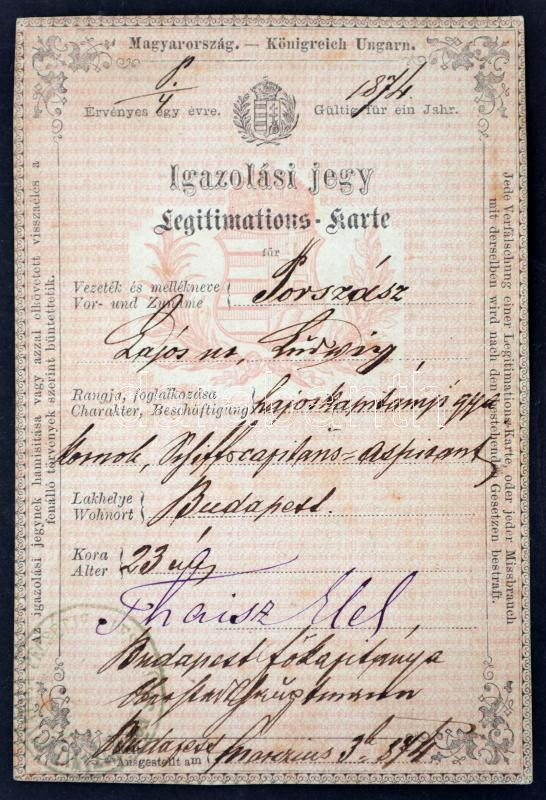 Magyarország. — Königreich Ungarn.
P. 1874
4
Érvényes egy évre. Gültig für ein Jahr.
Igazolási jegy
Legitimations-Karte
für
Vezeték és mellékneve
Vor- und Zuname
Porszász
Lajos úr, Ludwig,
Rangja, foglalkozása
Charakter, Beschäftigung
hajoskapitányi gya
kornok, Schiffscapitäns-Aspirant
Lakhelye
Wohnort
Budapest.
Kora
Alter
23 év,
Thaisz Elek,
Budapest főkapitánya
Budapest
Ausgestellt am
Marzius 3 874
Az igazolási jegynek hamisítása vagy azzal elkövetett visszaélés a
fenálló törvények szerint büntettetik.
Jede Verfälschung einer Legitimations-Karte, oder jeder Missbrauch
mit derselben wird nach den bestehenden Gesetzen bestraft.